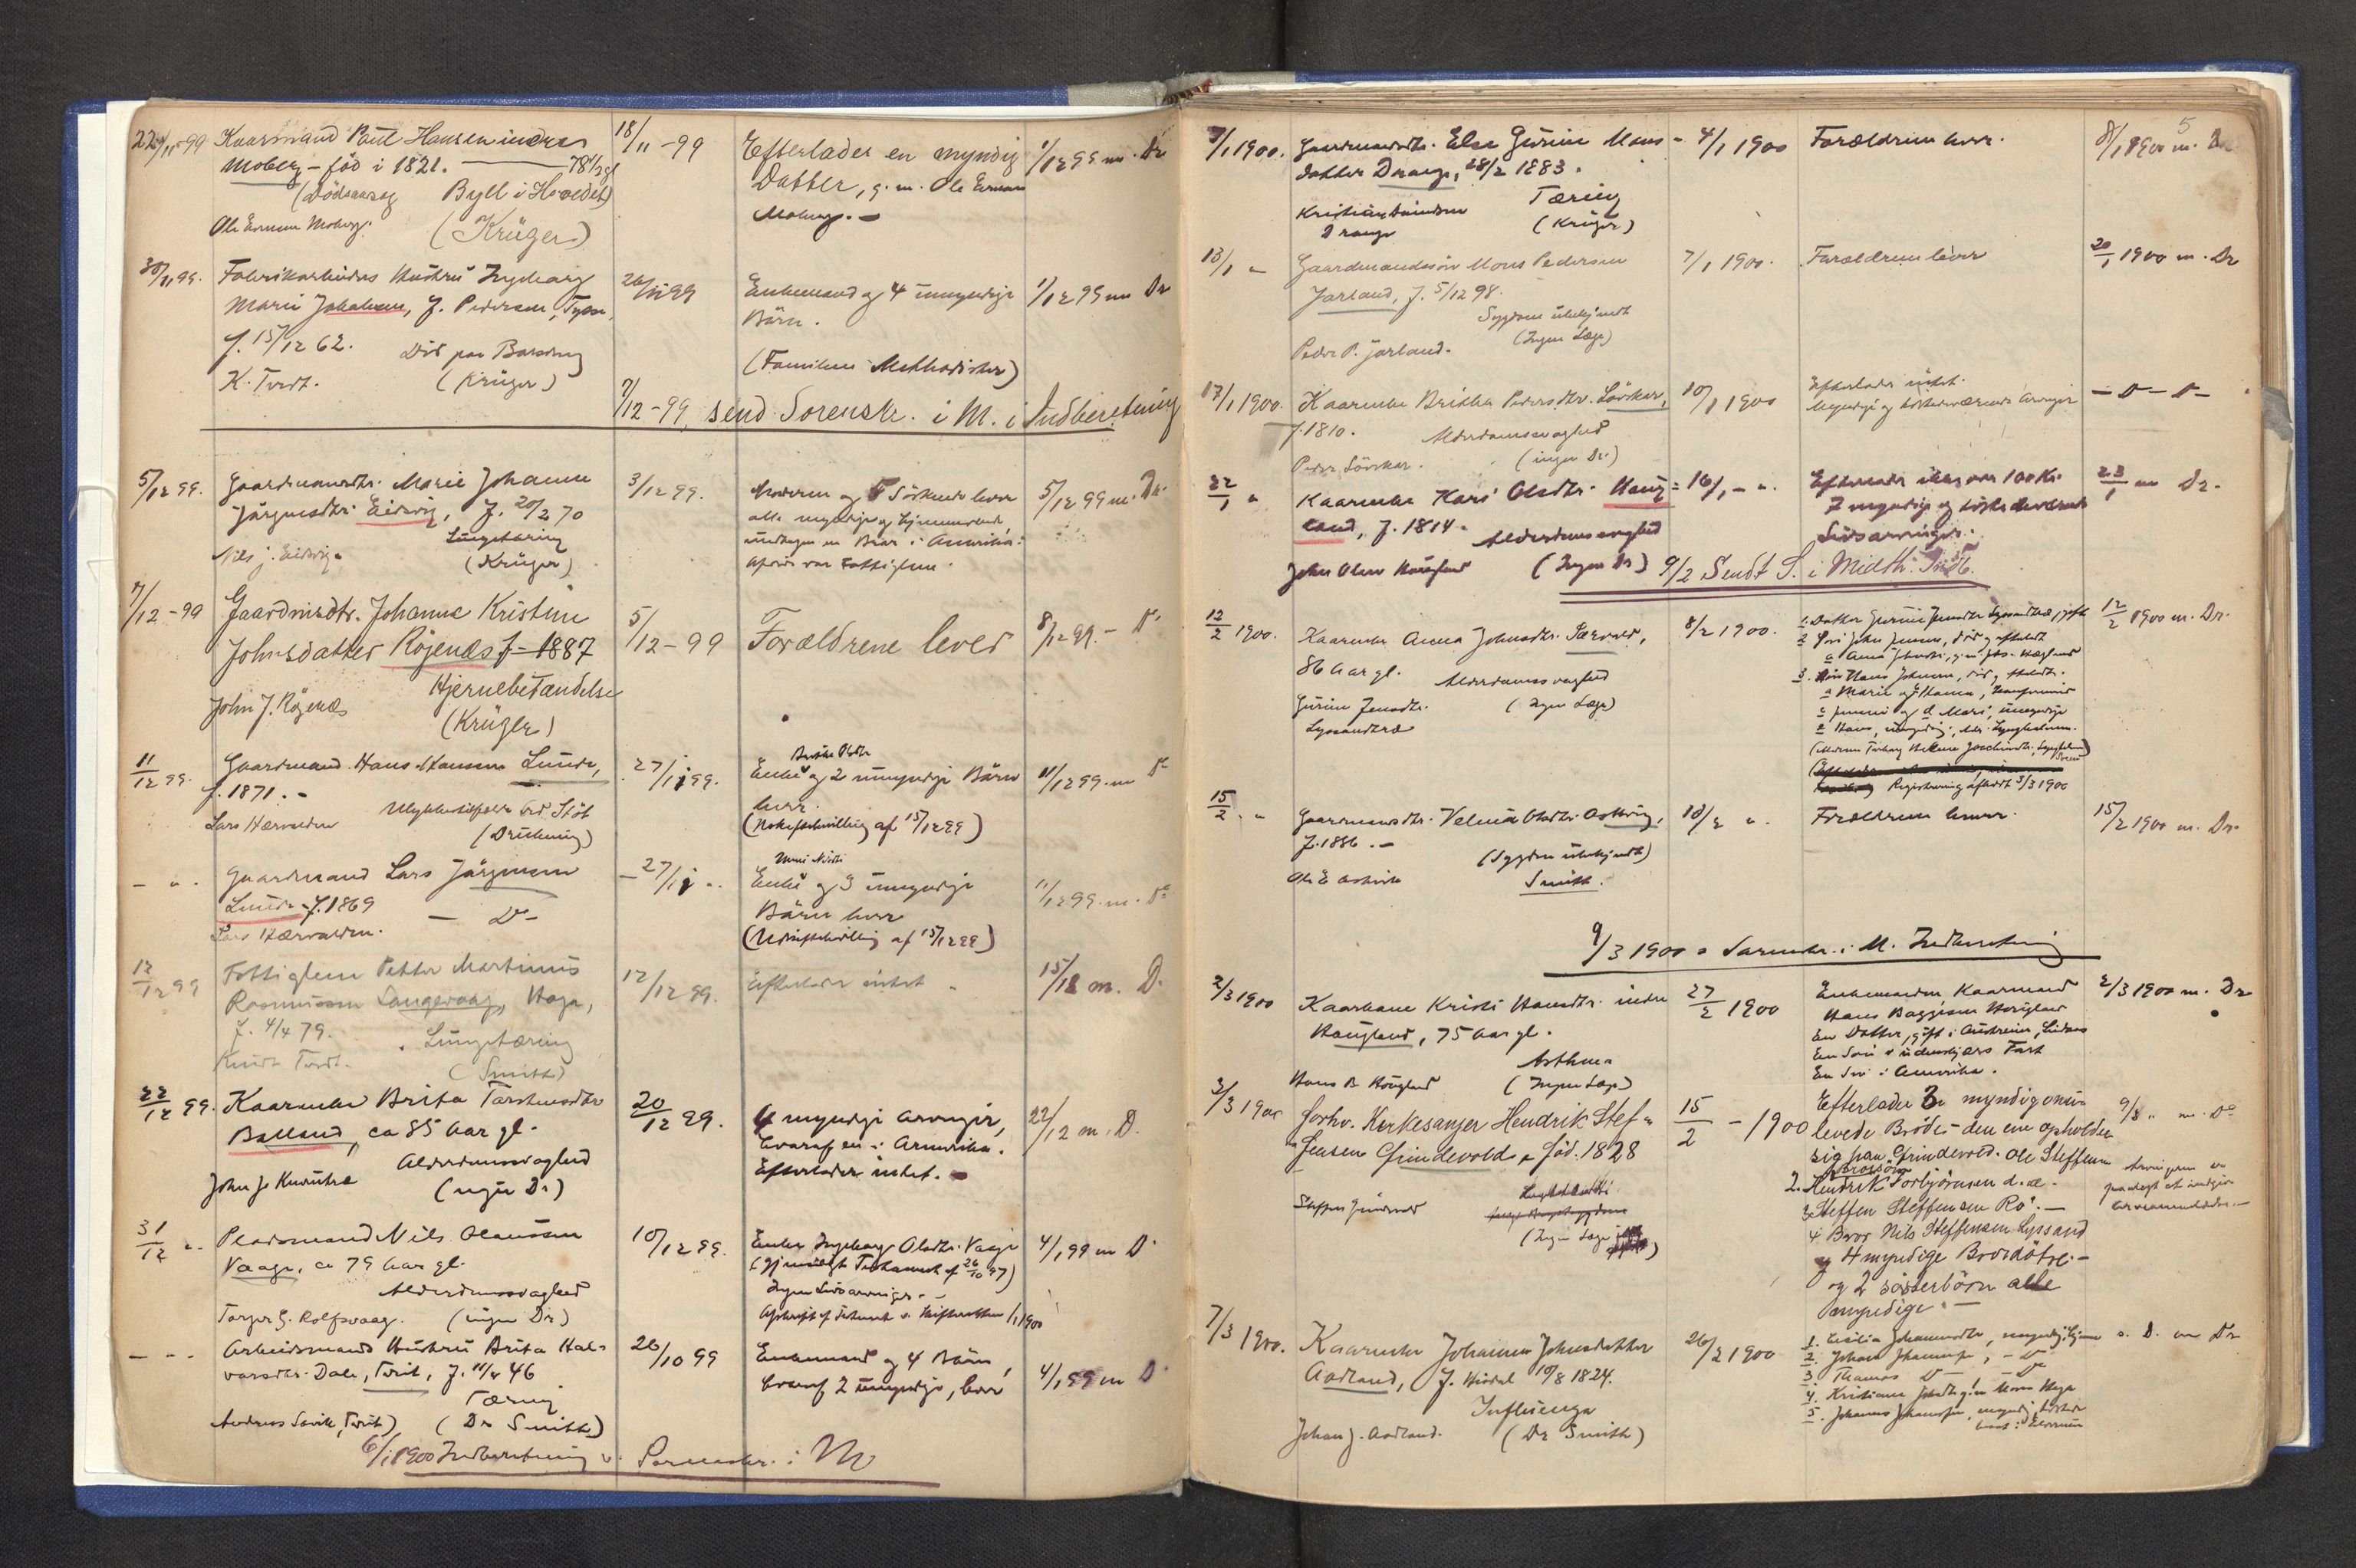 22/11-99 Kaarmand Paul Hansen indre 18/11-99 Efterlader en myndig 1/12 99 m. Dr.
Moberg - föd i 1821. 78 1/2 gl Datter, g. m. Ole
(Dödsaarsag Byll i Hovedet) Moberg. -
Ole Moberg. (Krüger)
30/11 99. Fabrikarbeiders Hustru Ingeborg 26/11 99 Enkemand og 4 umyndige 1/12 99 m Dr
Marie Johansen, f. Pedersen, Tysse, Börn.
f. 15/12 62. Död paa Barselseng
K. Tveit. (Krüger) (Familien Methodister)
7/12-99 send Sorenskr. i M. i Indberetning
5/12 99. Gaardmandsdtr. Marie Johanne 3/12 99. Moderen og Söskende lever 5/12 99 m. Dr.
Jörgensdtr. Eidsvig, f. 20/2 70 alle myndige og hjemmeværende
Lungetæring undtagen en Bror i Amerika.
Nils J. Eidsvig (Krüger) Afdöde var Fattiglem.
7/12-99 Gaardmdtr. Johanne Kristine 5/12-99 Forældrene lever 8/12 99. - D.
Johnsdatter Röjenæs f- 1887
Hjernebetændelse
John J. Röjenæs (Krüger)
11/12 99. Gaardmand Hans Hansen Lunde, 27/11 99. Enke og 2 umyndige Börn 11/12 99. m D.
f. 1871. - lever.
Lars Hærvalden Ulykkestilfælde ved Stöt (Uskiftebevilling af 15/12 99)
(Drukning)
- " - Gaardmand Lars Jörgensen - 27/11 " Enke og 3 umyndige 11/12 99. m. D.
Lunde f. 1869 - D - Börn lever
Lars Hærvalden. (Uskiftebevilling af 15/12 99)
12/12 99 Fattiglem Petter Martinus 12/12 99. Efterlader intet - 15/12 m. D.
Rasmussen Langevaag, Haga,
f. 4/4 79. Lungetæring
Knut Tveit. (Smith)
22/12 99. Kaarenke Brita Torstensdtr 20/12 99. 4 myndige Arvinger, 22/12 m. D.
Balland, ca 85 Aar gl. hvoraf en i Amerika.
Alderdomssvaghed Efterlader intet. -
John J. (ingen Dr)
31/12 " Pladsmand Nils Olaussen 10/12 99. Enke Ingeborg Olsdtr. Vaage 4/1 99 m D.
Vaage, ca 79 Aar gl. (gjensidigt Testament af 26/10 97)
Alderdomssvaghed Ingen Livsarvinger. -
Torger G. Rolfsvaag. (ingen Dr) Afskrift af Testament 1/1 1900
- " - Arbeidsmands Hustru Brita Hal- 26/10 99 Enkemand og 4 Börn, 4/1 99 m D.
vorsdtr. Dale, Tveit, f. 11/4 46 hvoraf 2 umyndige, lever
Tæring
Andreas Tveit) (Dr Smith)
6/1 1900 Indberetning v. Sorenskr. i M
5
3/1 1900. Gaardmandsdtr. Else Gurine Mons- 4/1 1900 Forældrene lever. 8/1 1900 m. D
datter Drange, 28/2 1883.
Kristian Davidsen Tæring
Drange (Krüger)
13/1 " Gaardmandssön Mons Pedersen 7/1 1900. Forældrene lever 20/1 1900 m. Dr
Jarland, f. 5/12 98.
Sygdom ubekjendt
Peder P. Jarland. (Ingen Læge)
17/1 1900. Kaarenke Britha Pedersdtr. Lövskar, 10/1 1900 Efterlader intet. - D - D -
f. 1810. Alderdomssvaghed Myndige og tilstedeværende Arvinger
Peder Lövskar. (ingen Dr.)
22/1 " Kaarenke Kari Olsdtr. Haug= 16/1 - ". Efterlader ikke over 100 Kr. 23/1 m Dr.
land, f. 1814. 7 myndige og tilstedeværende
Alderdomssvaghed Livsarvinger.
John Olsen Haugland (Ingen Dr) 9/2 Sendt S. i Midth. Indb.
12/2 1900. Kaarenke Anna Johnsdtr. Særvold, 8/2 1900. 1. Datter Gurine Jensdtr Lyssandtræ, gift 12/2 1900 m. Dr.
86 Aar gl. 2 Sön John Jensen, död og efterladt
Alderdomssvaghed a Anna Johnsdtr., g. m. Haugland
Gurine Jensdtr. (Ingen Læge) 3. Sön Hans Johnsen, död, efterladt.
Lyssandtræ a Marie og b Hanna,
c og d Mari, umyndige
e Hans, umyndig,
Registrering afholdt 3/3 1900
15/2 " Gaardmandsdtr. Velmia Olsdtr. Askvig, 10/2 ". Forældrene lever. 15/2 1900 m. Dr.
f. 1886. - (Sygdom ubekjendt)
Ole E Askvik Smith.
9/3 1900 Sorenskr. i M. Indberetning
2/3 1900 Kaarkone Kristi Hansdtr. indre 27/2 1900 Enkemanden, Kaarmand 2/3 1900 m. Dr
Haugland, 75 Aar gl. Hans Baggesen Haugland
Asthma En Datter, gift i Austreim,
Hans B. Haugland (Ingen Læge) En Sön i udenskjærs Fart
En Sön i Amerika.
3/3 1900 forhv. Kirkesanger Hendrik Stef= 15/2 - 1900 Efterlader 3 myndige 9/3 " m. D.
fensen Grindevold, föd. 1828 levede Brödre den ene opholder
sig paa Grindevold. Ole Steffensen
Steffen Grindevold 2. Hendrik Torbjörnsen d. æ. Arvingerne er
(Ingen Læge) 3 Steffen Steffensen Rö. - paalagt at indgive
4 Bror Nils Steffensen Lyssand Arveanmeldelse. -
og 4 myndige Brordötre. -
og 2 sösterbörn alle
myndige. -
7/3 1900. Kaarenke Johanne Johnsdatter 26/2 1900 1. Cecilia Johannesdtr, myndig, hjemme s. D. m Dr
Aadland, f. 10/8 1824. 2. Johan, - D
Influenza 3. Thomas D - D
Johan J. Aadland. (Dr Smith) 4. Kristiane g. m. Mons Haga
5. Johannes myndig,